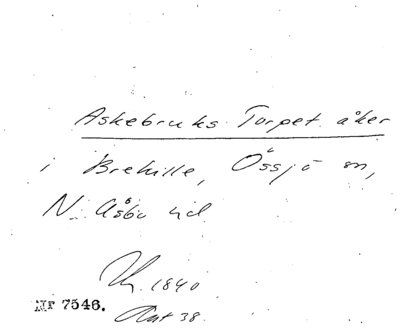 Askebruks Torpet åker
i Brehille, Össjö sn,
N. Åsbo hd
1840
Nr 7546.
38.